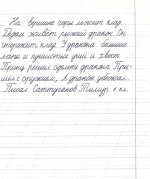 На вершине горы лежит клад.
Рядом живёт рыжий дракон. Он
сторожит клад. У дракона большие
лапы и пушистые уши и хвост.
Принц решил одолеть дракона. При-
шёл с оружием, а дракон убежал.
Писал Саттугалов Тимур 4 кл.